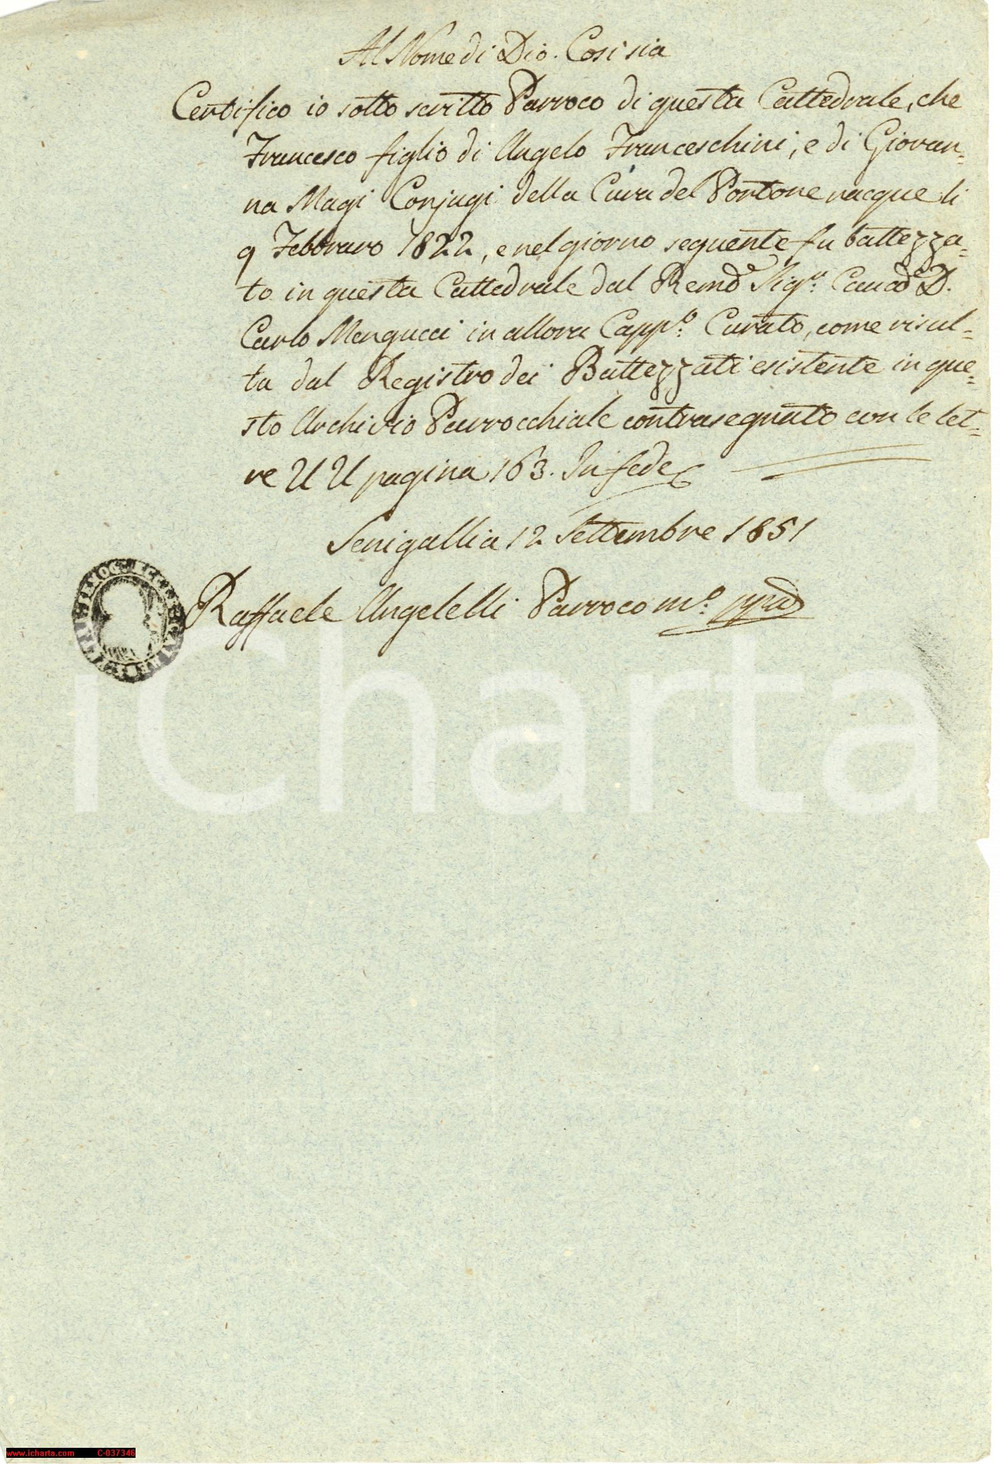 Al Nome di Dio. Così sia
Certifico io sotto scritto Parroco di questa Cattedrale, che
Francesco figlio di Angelo Franceschini, e di Giovan=
na Magi Conjugi della Cura del Portone nacque li
9 Febbraro 1822, e nel giorno seguente fu battezza=
to in questa Cattedrale dal Remd.o Sig.r D.
Carlo Mengucci in allora Capp.o Curato, come risul=
ta dal Registro dei Battezzati esistente in que=
sto Archivio Parrocchiale contrasegnato con le let=
re U U pagina 163. In fede
Senigallia 12 Settembre 1851
Raffaele Angelelli Parroco m.o ppa
iCharta
www.icharta.com C-037346